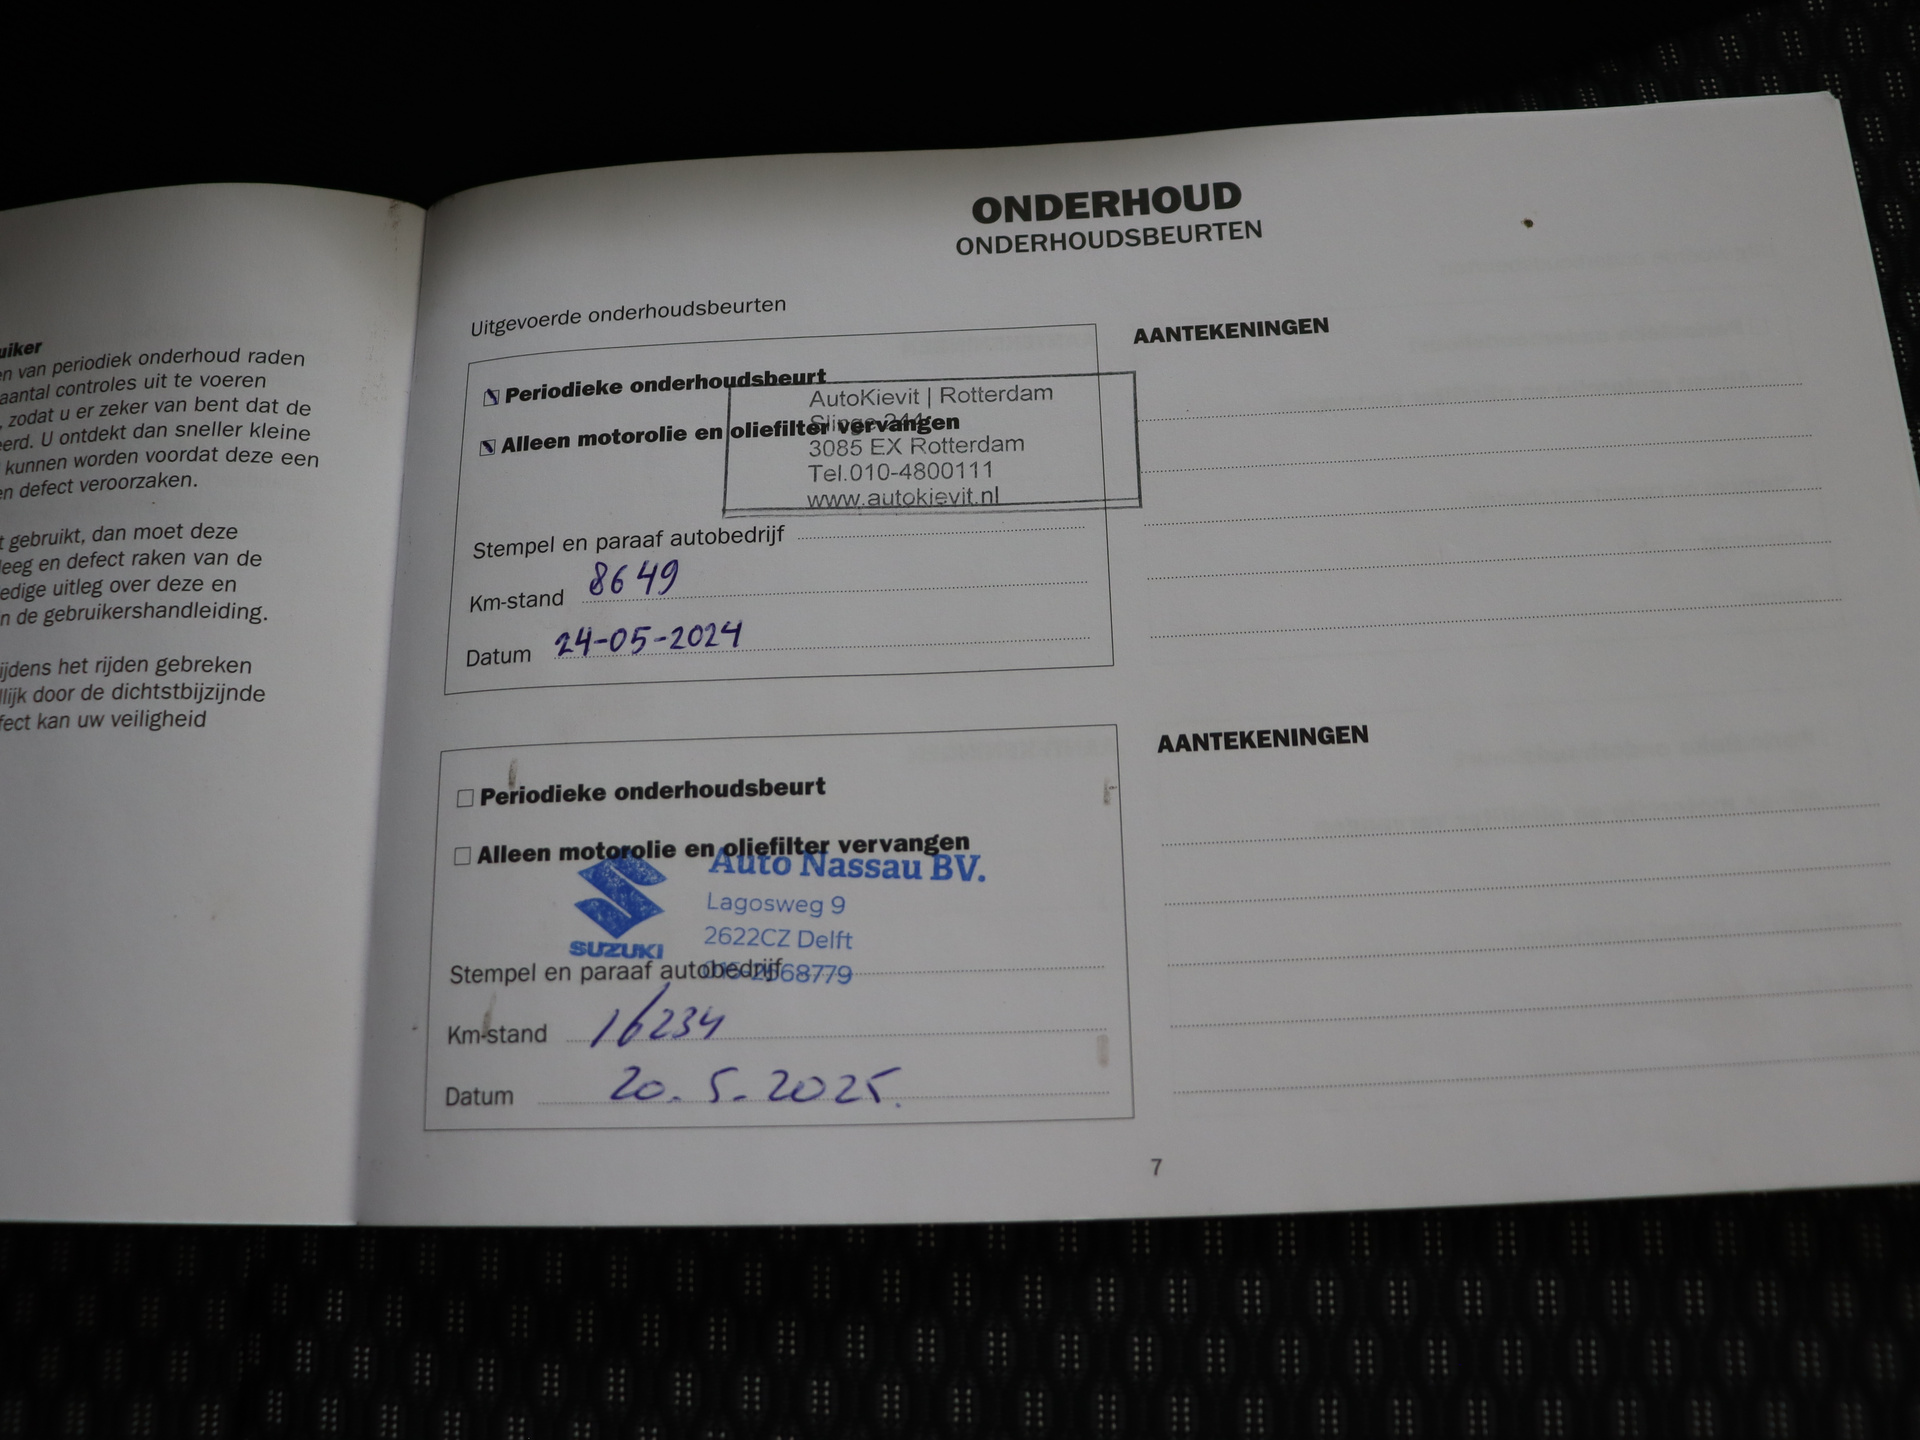 uiker
en van periodiek onderhoud raden
aantal controles uit te voeren
, zodat u er zeker van bent dat de
eerd. U ontdekt dan sneller kleine
kunnen worden voordat deze een
en defect veroorzaken.
t gebruikt, dan moet deze
leeg en defect raken van de
edige uitleg over deze en
n de gebruikershandleiding.
ijdens het rijden gebreken
llijk door de dichtstbijzijnde
fect kan uw veiligheid
ONDERHOUD
ONDERHOUDSBEURTEN
Uitgevoerde onderhoudsbeurten
Periodieke onderhoudsbeurt
AutoKievit | Rotterdam
Slinge 244
Alleen motorolie en oliefilter vervangen
3085 EX Rotterdam
Tel.010-4800111
www.autokievit.nl
Stempel en paraaf autobedrijf
Km-stand 8649
Datum 24-05-2024
AANTEKENINGEN
Periodieke onderhoudsbeurt
Alleen motorolie en oliefilter vervangen
Auto Nassau BV.
Lagosweg 9
2622CZ Delft
SUZUKI
Stempel en paraaf autobedrijf
Km-stand 16234
Datum 20.5.2025.
AANTEKENINGEN
7